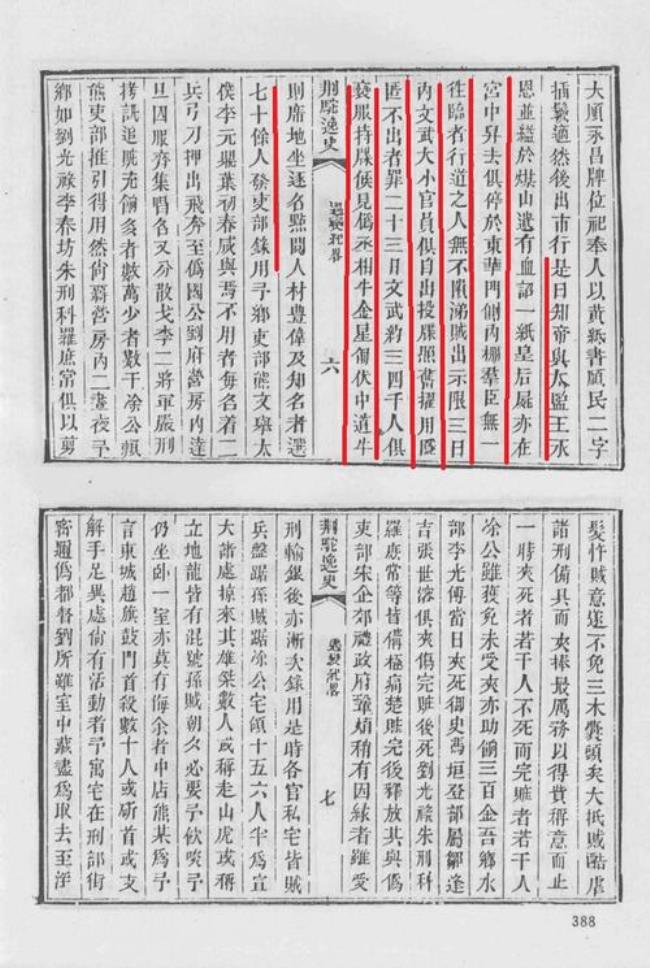 大順永昌牌位祀奉人以黃紙書順民二字
插鬢邊然後出市行是日知帝與太監王承
恩並縊於煤山遺有血詔一紙皇后屍亦在
宮中舁去俱停於東華門側內棚羣臣無一
往臨者行道之人無不隕涕賊出示限三日
內文武大小官員俱自出投牒照舊擢用隱
匿不出者罪二十三日文武約三四千人俱
衰服持牒候見僞丞相牛金星匍伏中道牛
荆駝逸史
遇變紀畧
六
則席地坐逐名點閱人材豊偉及知名者選
七十餘人發吏部錄用予鄉吏部熊文舉太
僕李元鼎葉初春咸與焉不用者每名着二
兵弓刀押出飛奔至僞國公劉府營房內達
旦囚服齊集唱名又分散戈李二將軍嚴刑
拷訊追贓充餉多者數萬少者數千涂公
熊吏部推引得用然尙羈營房內二晝夜予
鄉如劉光祿李春坊朱刑科羅庶常俱以剪
髮忤賊意遂不免三木囊頭矣大抵賊酷虐
諸刑備具而夾棒最厲務以得貲稱意而止
一時夾死者若干人不死而完贓者若干人
涂公雖獲免未受夾亦助餉三百金吾鄉水
部李光傳當日夾死御史馮垣登部屬鄒逢
吉張世溶俱夾傷完贓後死劉光祿朱刑科
羅庶常等皆備極痛楚贓完後釋放其與僞
吏部宋企郊禮政府鞏焴稍有因緣者雖受
荆駝逸史
遇變紀畧
七
刑輸銀後亦漸次錄用是時各官私宅皆賊
兵盤踞孫賊踞涂公宅領十五六人半爲宜
大諸處掠來其雄桀數人或稱走山虎或稱
立地龍皆有混號孫賊朝夕必要予飮啖予
仍坐卧一室亦莫有侮余者中店熊某爲予
言東城趙旗鼓門首殺數十人或斫首或支
解手足異處尙有活動者予寓宅在刑部街
密邇僞都督劉所雖室中藏盡爲取去至淫
388